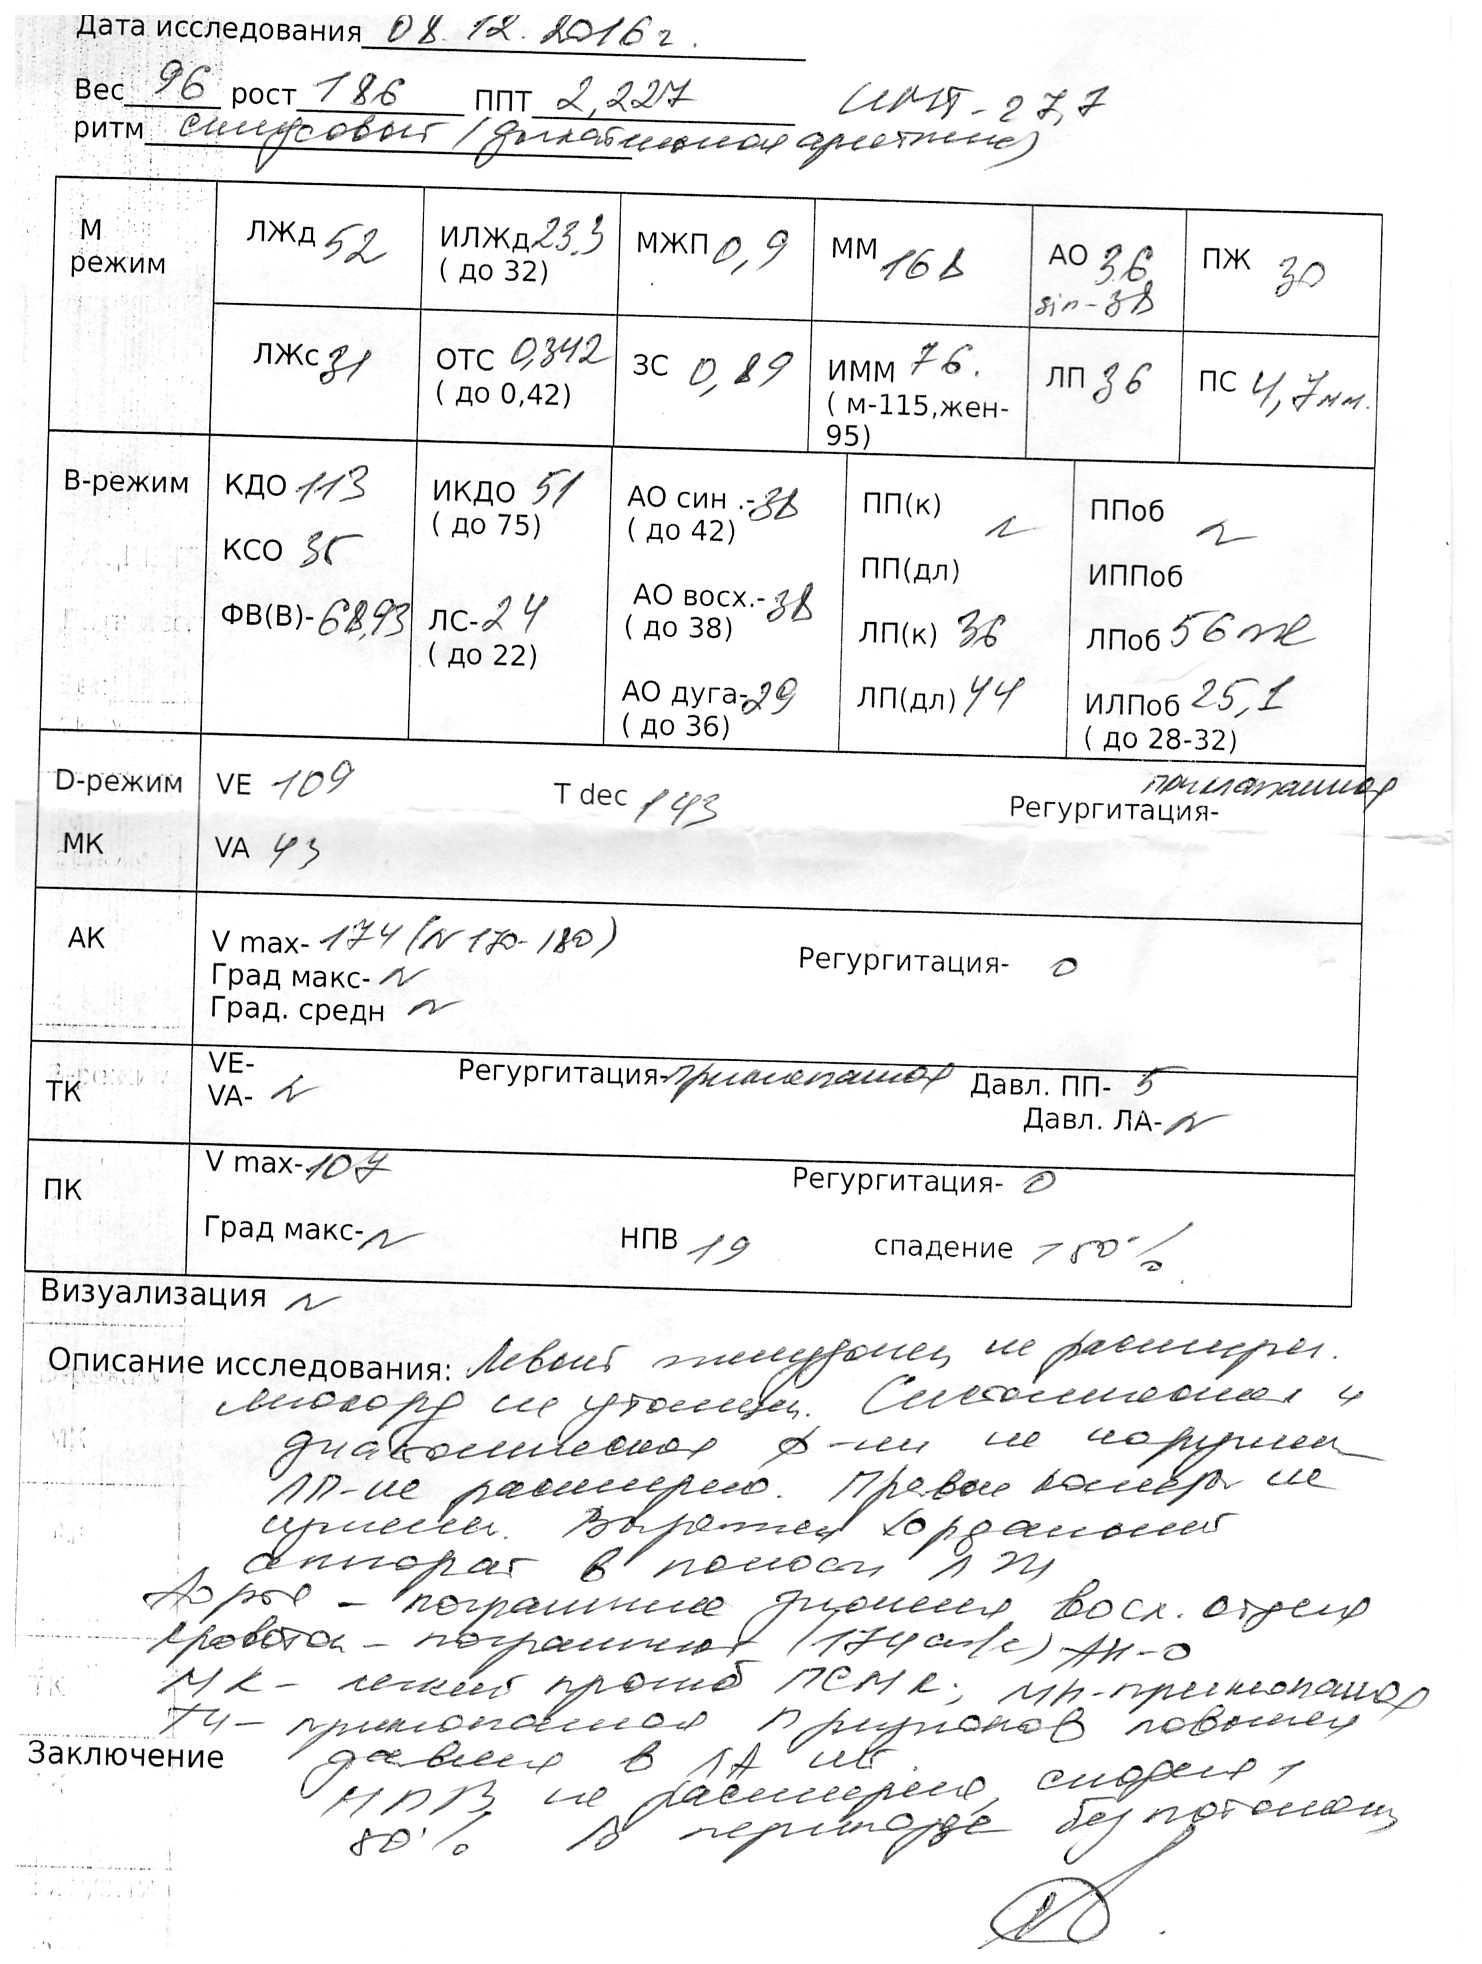 Дата исследования 08.12.2016г.
Вес 96 рост 186 ППТ 2,227 ИМТ-27,7
ритм синусовый (дыхательная аритмия)
М режим
ЛЖд 52
ИЛЖд 23.3
( до 32)
МЖП 0,9
ММ 168
АО 36
sin-38
ПЖ 30
ЛЖс 31
ОТС 0,342
( до 0,42)
ЗС 0,89
ИММ 76.
( м-115,жен-
95)
ЛП 36
ПС 4,7мм.
В-режим
КДО 113
КСО 35
ФВ(В)-68,93
ИКДО 51
( до 75)
ЛС-24
( до 22)
АО син .-38
( до 42)
АО восх.-38
( до 38)
АО дуга-29
( до 36)
ПП(к) N
ПП(дл)
ЛП(к) 36
ЛП(дл) 44
ППоб N
ИППоб
ЛПоб 56мл
ИЛПоб 25,1
( до 28-32)
D-режим
МК
VE 109 T dec 143 Регургитация- приклапанная
VA 43
АК
V max- 174 (N 170-180) Регургитация- 0
Град макс- N
Град. средн N
ТК
VE-
VA- N
Регургитация-приклапанная Давл. ПП- 5
Давл. ЛА- N
ПК
V max-107 Регургитация- 0
Град макс- N НПВ 19 спадение >50%
Визуализация N
Описание исследования: Левый желудочек не расширен.
Миокард не утолщен. Систолическая и
диастолическая ф-ии не нарушены
ЛП-не расширено. Правые камеры не
изменены. Выражен хордальный
аппарат в полости ЛЖ
Аорта - пограничные значения восх. отдела
кровоток - пограничный (174см/с) АН-0
МК- легкий пролапс ПСМК; МН-приклапанная
ТН- приклапанная Признаков повышения
Заключение
давления в ЛА нет.
НПВ не расширена, спадение >
50% В перикарде без патологии